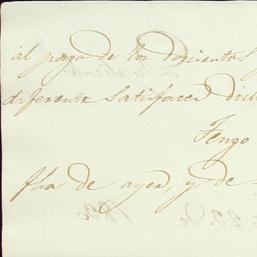 al pago de los doscientos
diferente satisfacer dich
Tengo
fha de ayer, y de